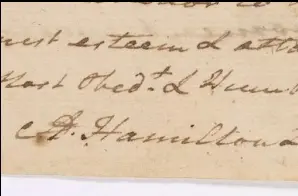 esteem & att
Most Obed.t & Hum
A. Hamilton